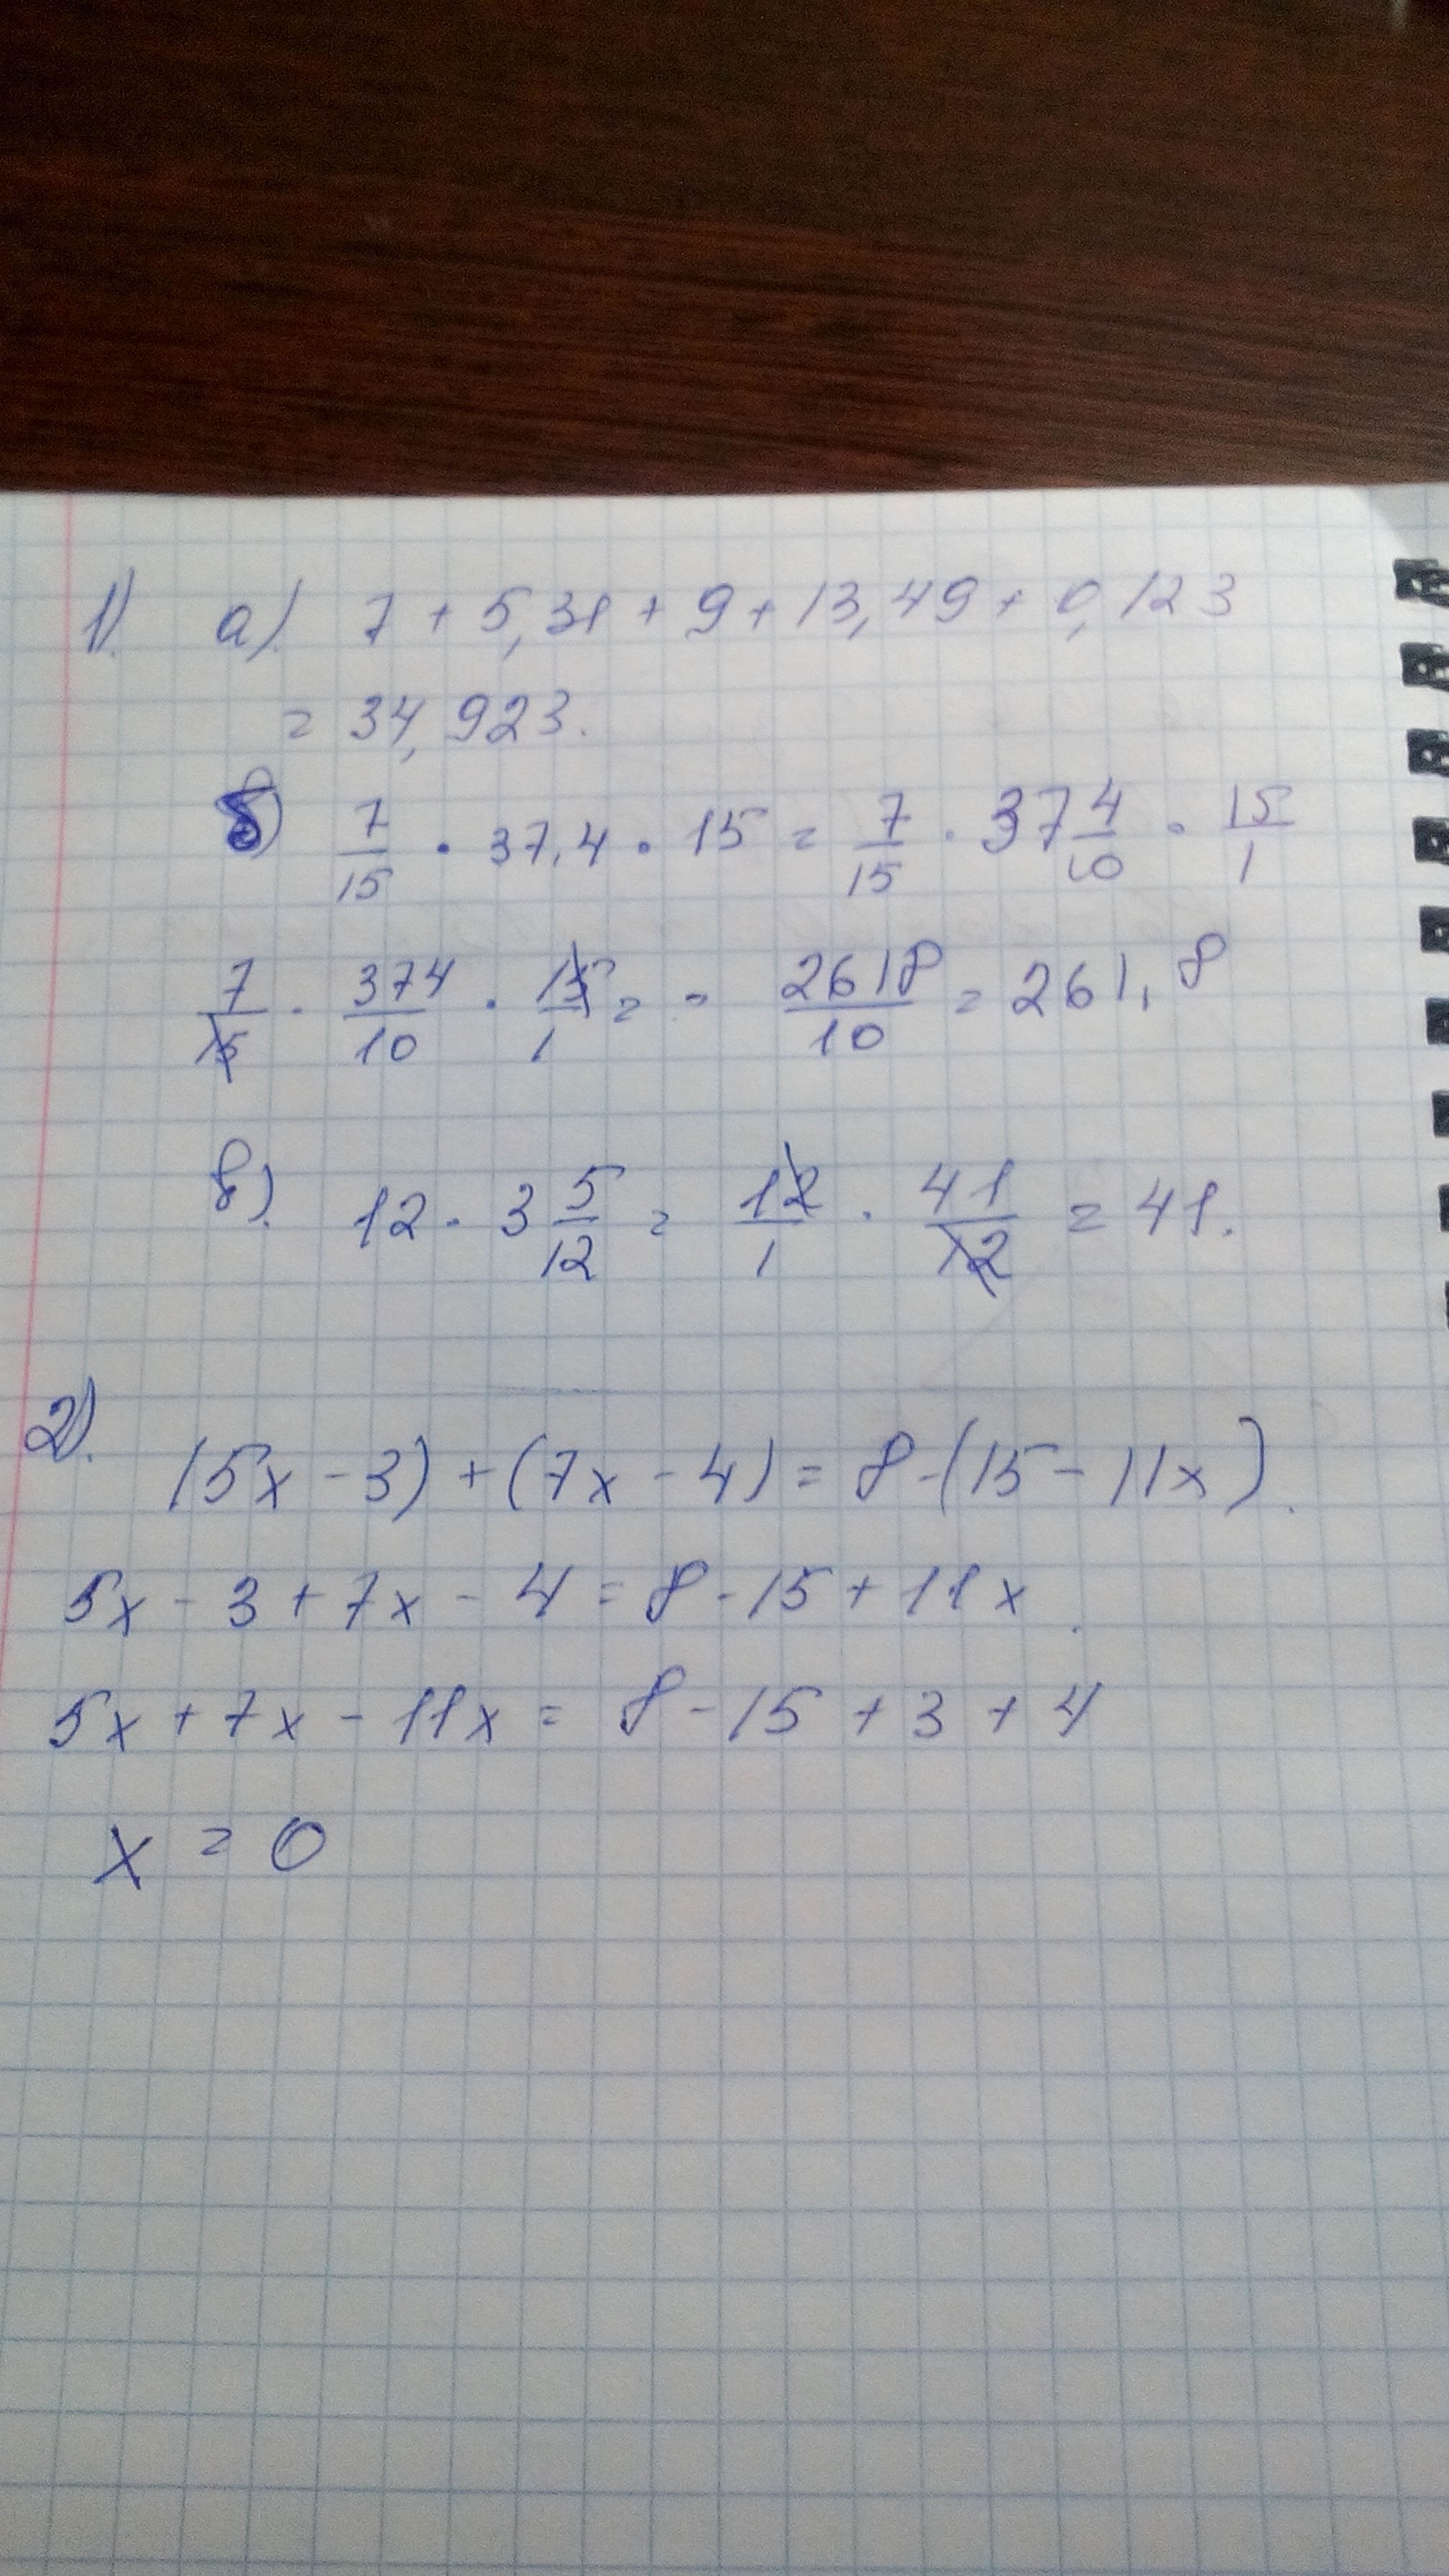 1). а). 7 + 5,31 + 9 + 13,49 + 0,123
= 34,923.
б) 7/15 · 37,4 · 15 = 7/15 · 37 4/10 · 15/1
7/15 · 374/10 · 15/1 = = 2618/10 = 261,8
в). 12 · 3 5/12 = 12/1 · 41/12 = 41.
2). (5x - 3) + (7x - 4) = 8 - (15 - 11x).
5x - 3 + 7x - 4 = 8 - 15 + 11x.
5x + 7x - 11x = 8 - 15 + 3 + 4
x = 0